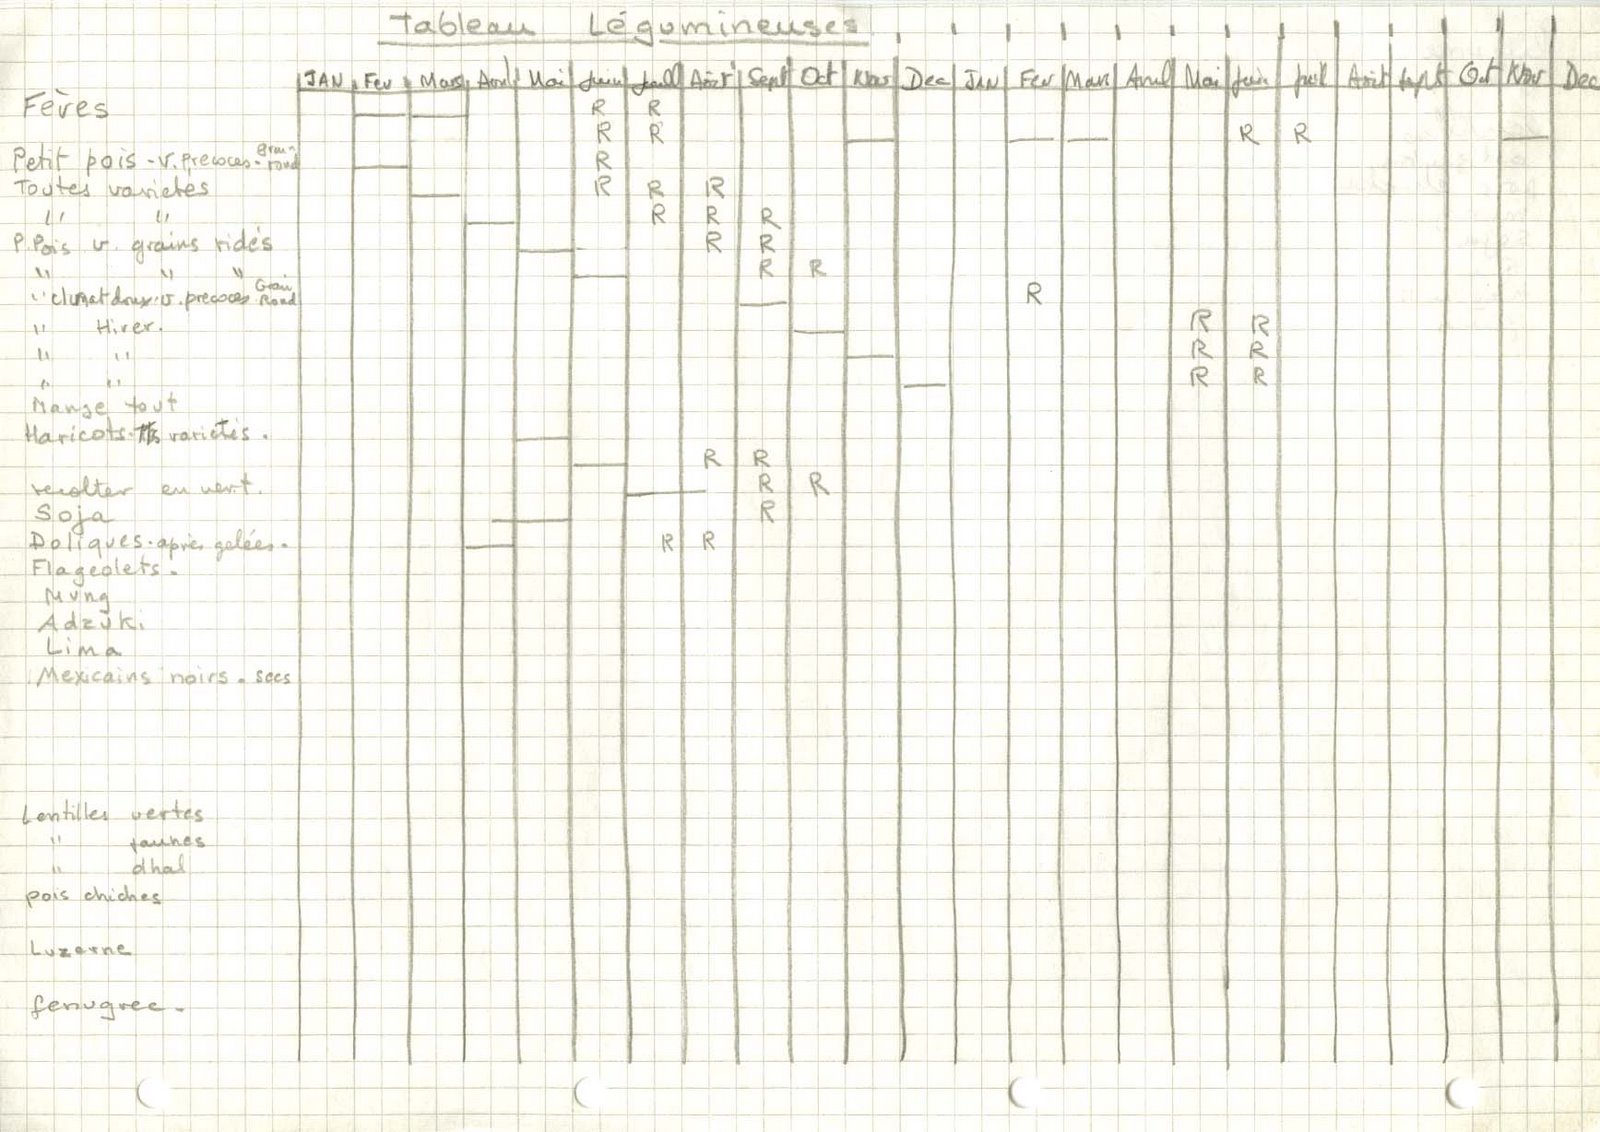 Tableau Légumineuses
JAN Fev Mars Avril Mai Juin Juill Août Sept Oct Nov Dec JAN Fev Mars Avril Mai Juin Juil Août Sept Oct Nov Dec
Fèves R R
R R R R
Petit pois - v. precoces - grain rond R
Toutes varietes R R R
" " R R R
P. Pois v. grains ridés R R
" " " R R
" climat doux. v. precoces Grain Rond R
" Hiver. R R
" " R R
" " R R
Mange tout
Haricots. Ttes varietés.
R R
recolter en vert. R R
Soja R
Doliques. après gelées. R R
Flageolets.
Mung
Adzuki
Lima
Mexicains noirs. secs
Lentilles vertes
" jaunes
" dhal
pois chiches
Luzerne
fenugrec.